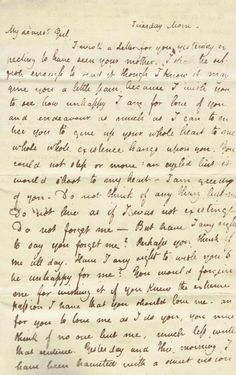 Tuesday Morn -
My dearest Girl
I wrote a Letter for you yesterday ex
pecting to have seen your mother. I shall be sel
fish enough to send it though I know it may
give you a little pain, because I wish you
to see how unhappy I am for love of you
and endeavour as much as I can to en
tice you to give up your whole heart to me
whose whole existence hangs upon you. You
could not step or move an eyelid but it
would shoot to my heart - I am greedy
of you - Do not think of any thing but me
Do not live as if I was not existing -
Do not forget me - But have I any right
to say you forget me? Perhaps you think of
me all day. Have I any right to wish you to
be unhappy for me? You would forgive
me for wishing it if you knew the extreme
passion I have that you should love me - and
for you to love me as I do you, you must
think of no one but me, much less write
that sentence. Yesterday and this morning I
have been haunted with a sweet vision